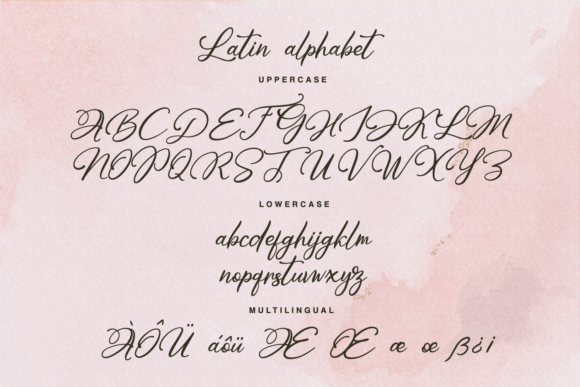 Latin alphabet
UPPERCASE
ABCDEFGHIJKLM
NOPQRSTUVWXYZ
LOWERCASE
abcdefghijgklm
nopqrstuvwxyz
MULTILINGUAL
ÀÔÜ áôü Æ Œ æ œ ß¿¡